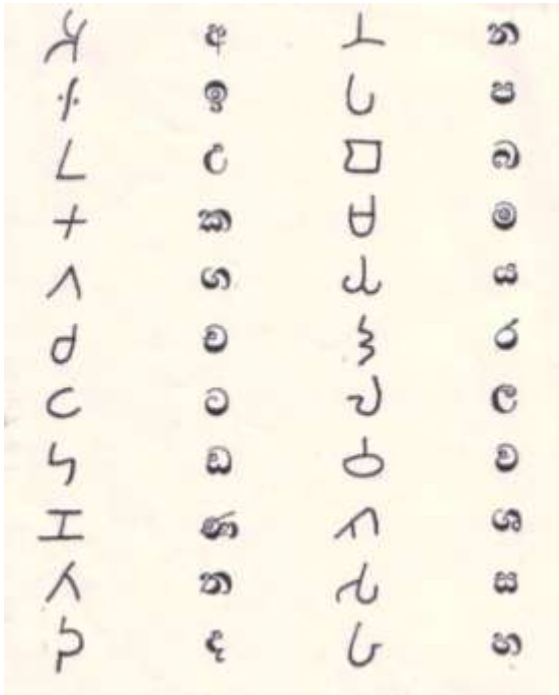 𑀅 අ 𑀦 න
𑀇 ඉ 𑀧 ප
𑀉 උ 𑀩 බ
𑀓 ක 𑀫 ම
𑀕 ග 𑀬 ය
𑀘 ච 𑀭 ර
𑀝 ට 𑀮 ල
𑀟 ඩ 𑀯 ව
𑀡 ණ 𑀰 ශ
𑀢 ත 𑀲 ස
𑀤 ද 𑀳 හ